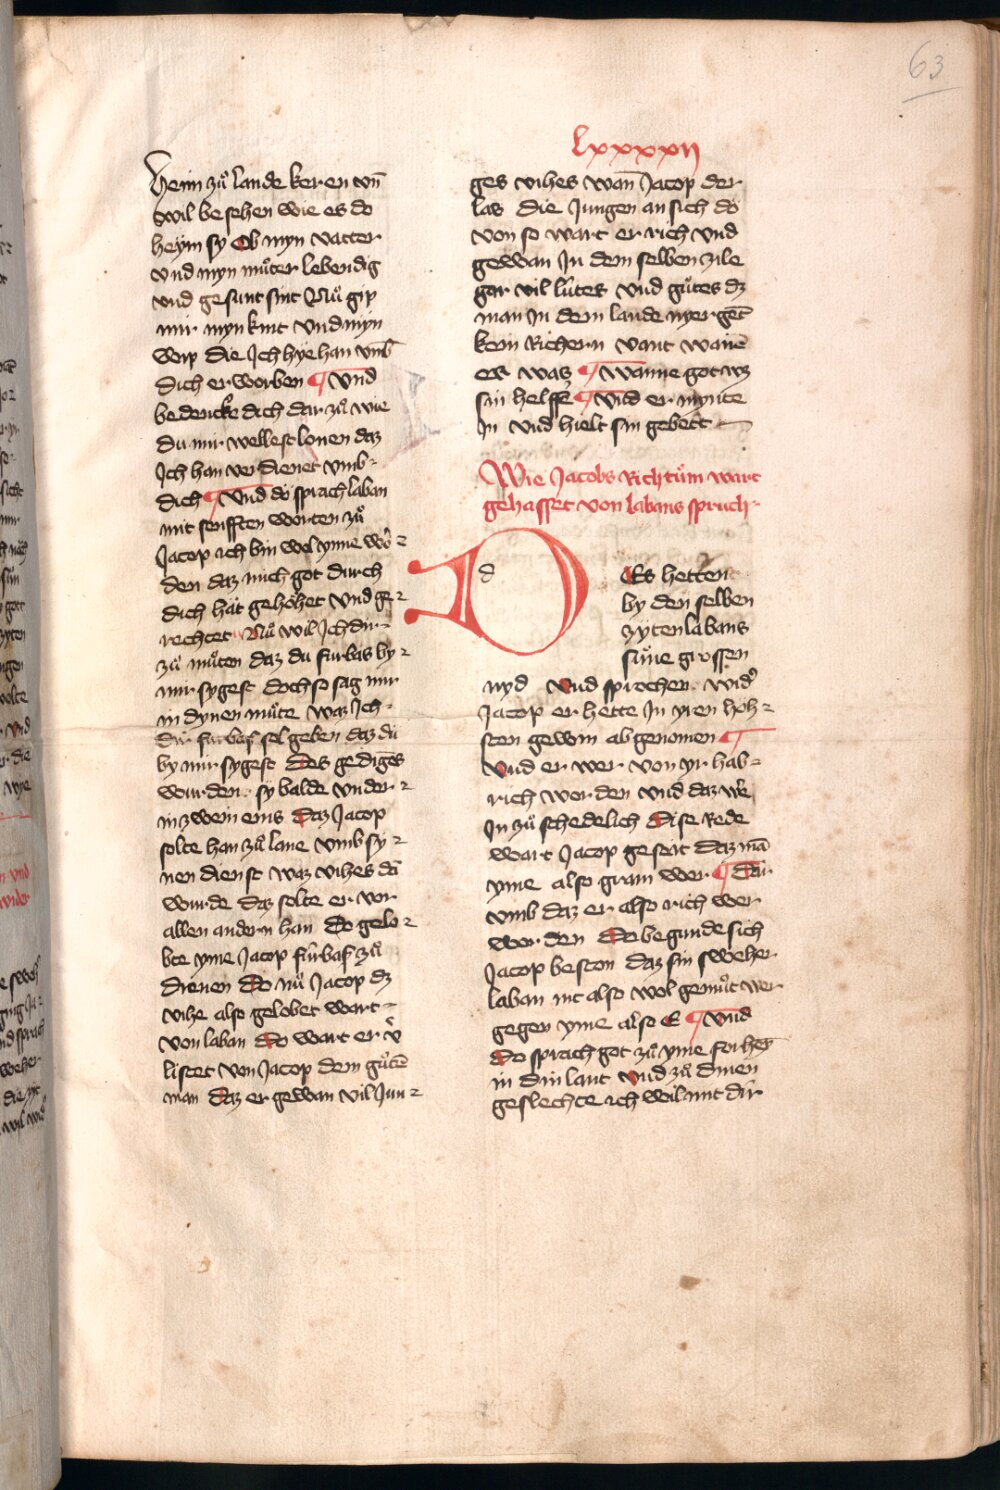 63
lxxxxii
Heim zuͦ lande keren vn̄
wil besehen wie es do
heym sy Ob myn vatter
vnd myn muͦter lebendig
vnd gesunt sint Nuͦ gip
mir myn kint vnd myn
wip die Ich hye han vmb
dich erworben ¶ Vnd
bedencke dich dar zuͦ wie
du mir wellest lonen daz
Ich han verdienet vmb
dich ¶ Vnd do sprach laban
mit senfften worten zuͦ
Jacop ich bin wol ynne wor
den daz mich got durch
dich hat gehoͤhet vnd ge
rechtet Nuͦ wil Ich dir
zuͦ muͦten daz du furbas by
mir sygest doch so sag mir
in dynen muͦte waz Ich
dir furbas sol geben daz du
by mir sygest Des gedinges
wurden sy balde vnder
in zwein eins Daz Jacop
solte han zuͦ lane vmb sy
nen dienst waz vihes do
wurde daz solte er vor
allen andern han Do gelo
bte yme Jacop fuͤrbas zuͦ
dienen Do nuͦ Jacop dz
vihe also gelobet wart
von laban Do wart er v̄
listet von Jacop dem guͦtē
man Daz er gewan vil Jun
ges vihes wan̄ Jacop der
las die Jungen an sich do
von so wart er rich vnd
gewan In dem selben zile
gar vil luͤtes vnd guͦtes dz
man In dem lande nyergēt
kein Richern vant wan̄e
er waz ¶ Wanne got wz
sin helffe ¶ Vnd er mynte
In vnd hielt sin gebett
Wie Jacobs Richtuͦm wart
gehasset von labans spruch
d Es hetten
by den selben
zyten labans
suͤne grossen
nyd Vnd sprochen wid'
Jacop er hette In yren hoͤh
sten gewin abgenomen ¶
Vnd er wer von yr hab
rich worden vnd daz wer
In zuͦ schedelich Dise Rede
wart Jacop geseit daz mā
yme also gram wer ¶ Dar
vmb daz er also rich wer
worden Do begunde sich
Jacop besten daz sin sweher
laban nit also wol gemuͦt wer
gegen yme also E ¶ Vnd
Do sprach got zuͦ yme for hey
in din lant Vnd zuͦ dinen
geslechte ich wil mit dir